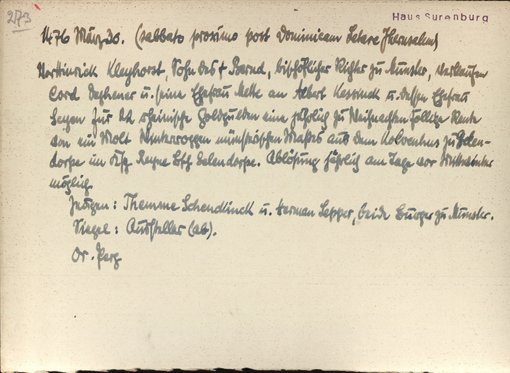 273
Haus Surenburg
1476 März 30. (sabbato proximo post Dominicam Letare Jherusalem)
Vor Hinrick Kleyhorst, Sohn des † Bernd, bischöflicher Richter zu Münster, verkaufen
Cord Deghener u. seine Ehefrau Mette an Albert Kessinck u. dessen Ehefrau
für 24 rheinische Goldgulden eine jährlich zu Weihnachten fällige Rente
von ein Molt Winterroggen münsterschen Maßes aus dem zu
dorpe im Ksp. Reyne Bsch. Eelendorpe. Ablösung jährlich am Tage vor Mittwinter
möglich.
Zeugen: Themme Schendinck u. Herman Lepper, beide Bürger zu Münster.
Siegel: Aussteller (ab).
Or. Perg